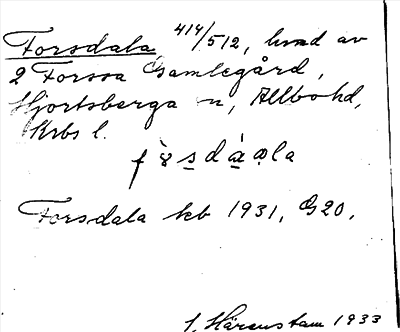 Forsdala 4¹4/512, hmd av
2 Forssa Gamlegård,
Hjortsberga sn, Allbo hd,
Krbs l.
Forsdala kb 1931, G20.
Härenstam 1933